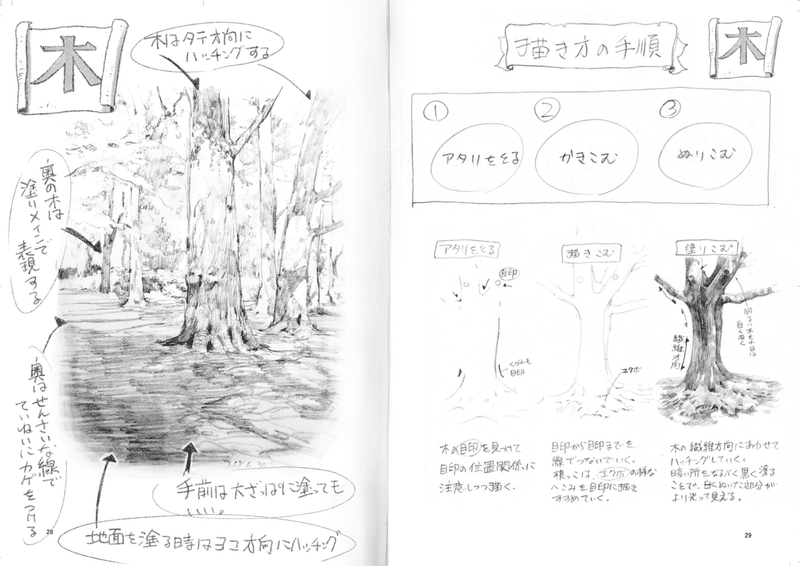 木
木はタテ方向に
ハッチングする
奥の木は
塗りメインで
表現する
奥はせんさいな線で
ていねいにカゲをつける
手前は大ざっぱに塗っても
いい。
地面を塗る時はヨコ方向にハッチング
28
描き方の手順
木
① ② ③
アタリをとる かきこむ ぬりこむ
アタリをとる
目印
くぼみも
目印
描きこむ
エクボ
塗りこむ
繊維方向
木の目印を見つけて
目印の位置関係に
注意しつつ描く。
目印から目印までを
線でつないでいく。
根っこは、エクボの様な
へこみを目印に描き
すすめていく。
木の繊維方向にあわせて
ハッチングしていく。
暗い所をなるべく黒く塗る
ことで、白くぬいた部分が
より光って見える。
29